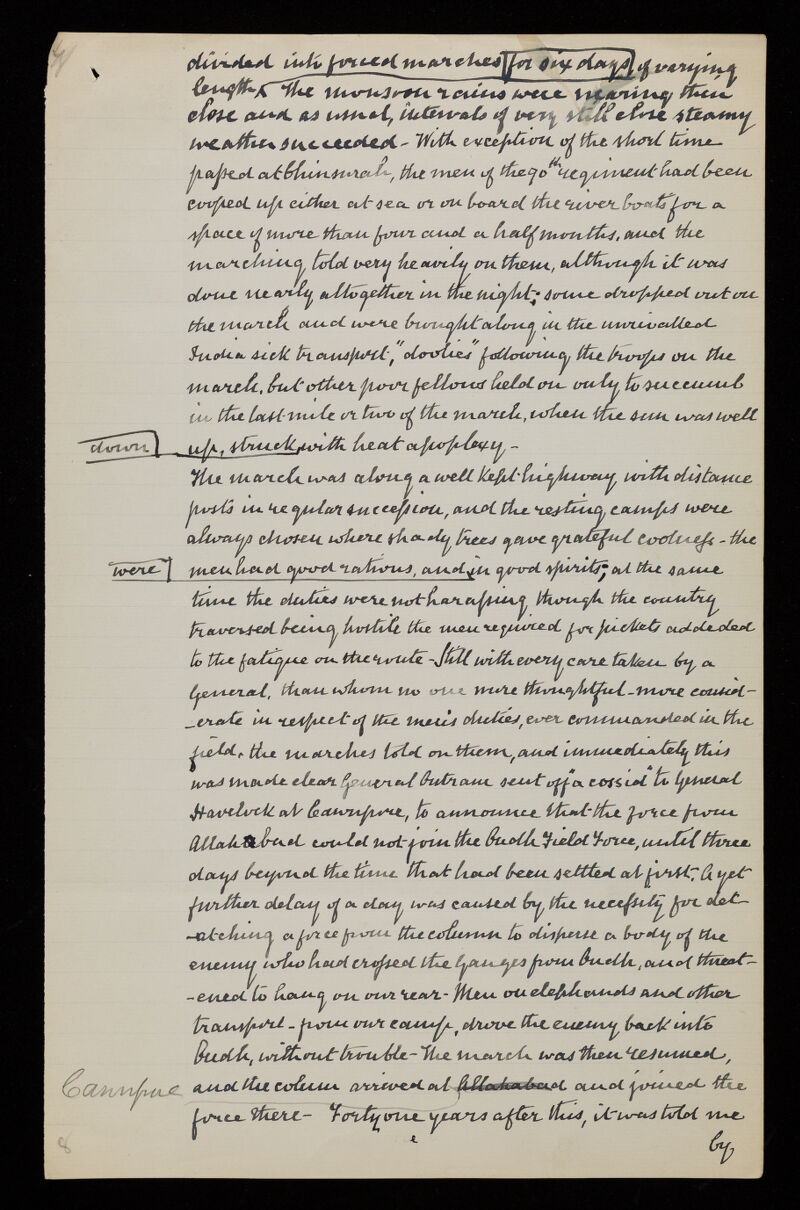 divided into forced marches for six days of varying
length. The monsoon rains were nearing their
close and as usual, intervals of very still close steamy
weather succeeded - With exception of the short time
passed at Chinsurah, the men of the 90th regiment had been
cooped up either at sea or on board the river boats for a
space of more than four and a half months, and the
marching told very heavily on them, although it was
done nearly altogether in the night; some dropped out on
the march and were brought along in the unrivalled
India sick transport, "doolies" following the troops on the
march, but other poor fellows held on only to succumb
in the last mile or two of the march, when the sun was well
down up, struck with heat apoplexy -
The march was along a well kept highway, with distance
posts in regular succession, and the resting camps were
always chosen where shady trees gave grateful coolness - the
were men had good rations, and in good spirits; at the same
time the duties were not harassing though the country
traversed being hostile the men required for pickets addeded
to the fatigue on the route - Still with every care taken by a
General, than whom no one more thoughtful - more consid-
-erate in respect of the men's duties, ever commanded in the
field, the marches told on them, and immediately this
was made clear General Outram sent off "a cossid" to General
Havelock at Cawnpore, to announce that the force from
Allahabad could not join the Oudh Field Force, until three
days beyond the time that had been settled at first. A yet
further delay of a day was caused by the necessity for det-
-atching a force from the column to disperse a body of the
enemy who had crossed the Ganges from Oudh, and threat-
-ened to hang on our rear - Men on elephands and other
transport - from our camp, drove the enemy back into
Oudh, without trouble - The march was then resumed,
Cawnpue and the colum arrived at Allahabad and joined the
force there - Forty one years after this, it was told me
8
by